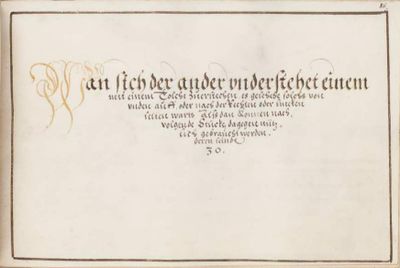 Wan sich der ander vnderstehet einem
mit einem Tolche Zuerstechen es geschehe solchs von
vnden auff, oder nach der Rechten oder lincken
seitten warts Alss dan konnen nach,
volgende Stucke dagegen nutz,
lich gebraucht werden.
deren seindt
30.